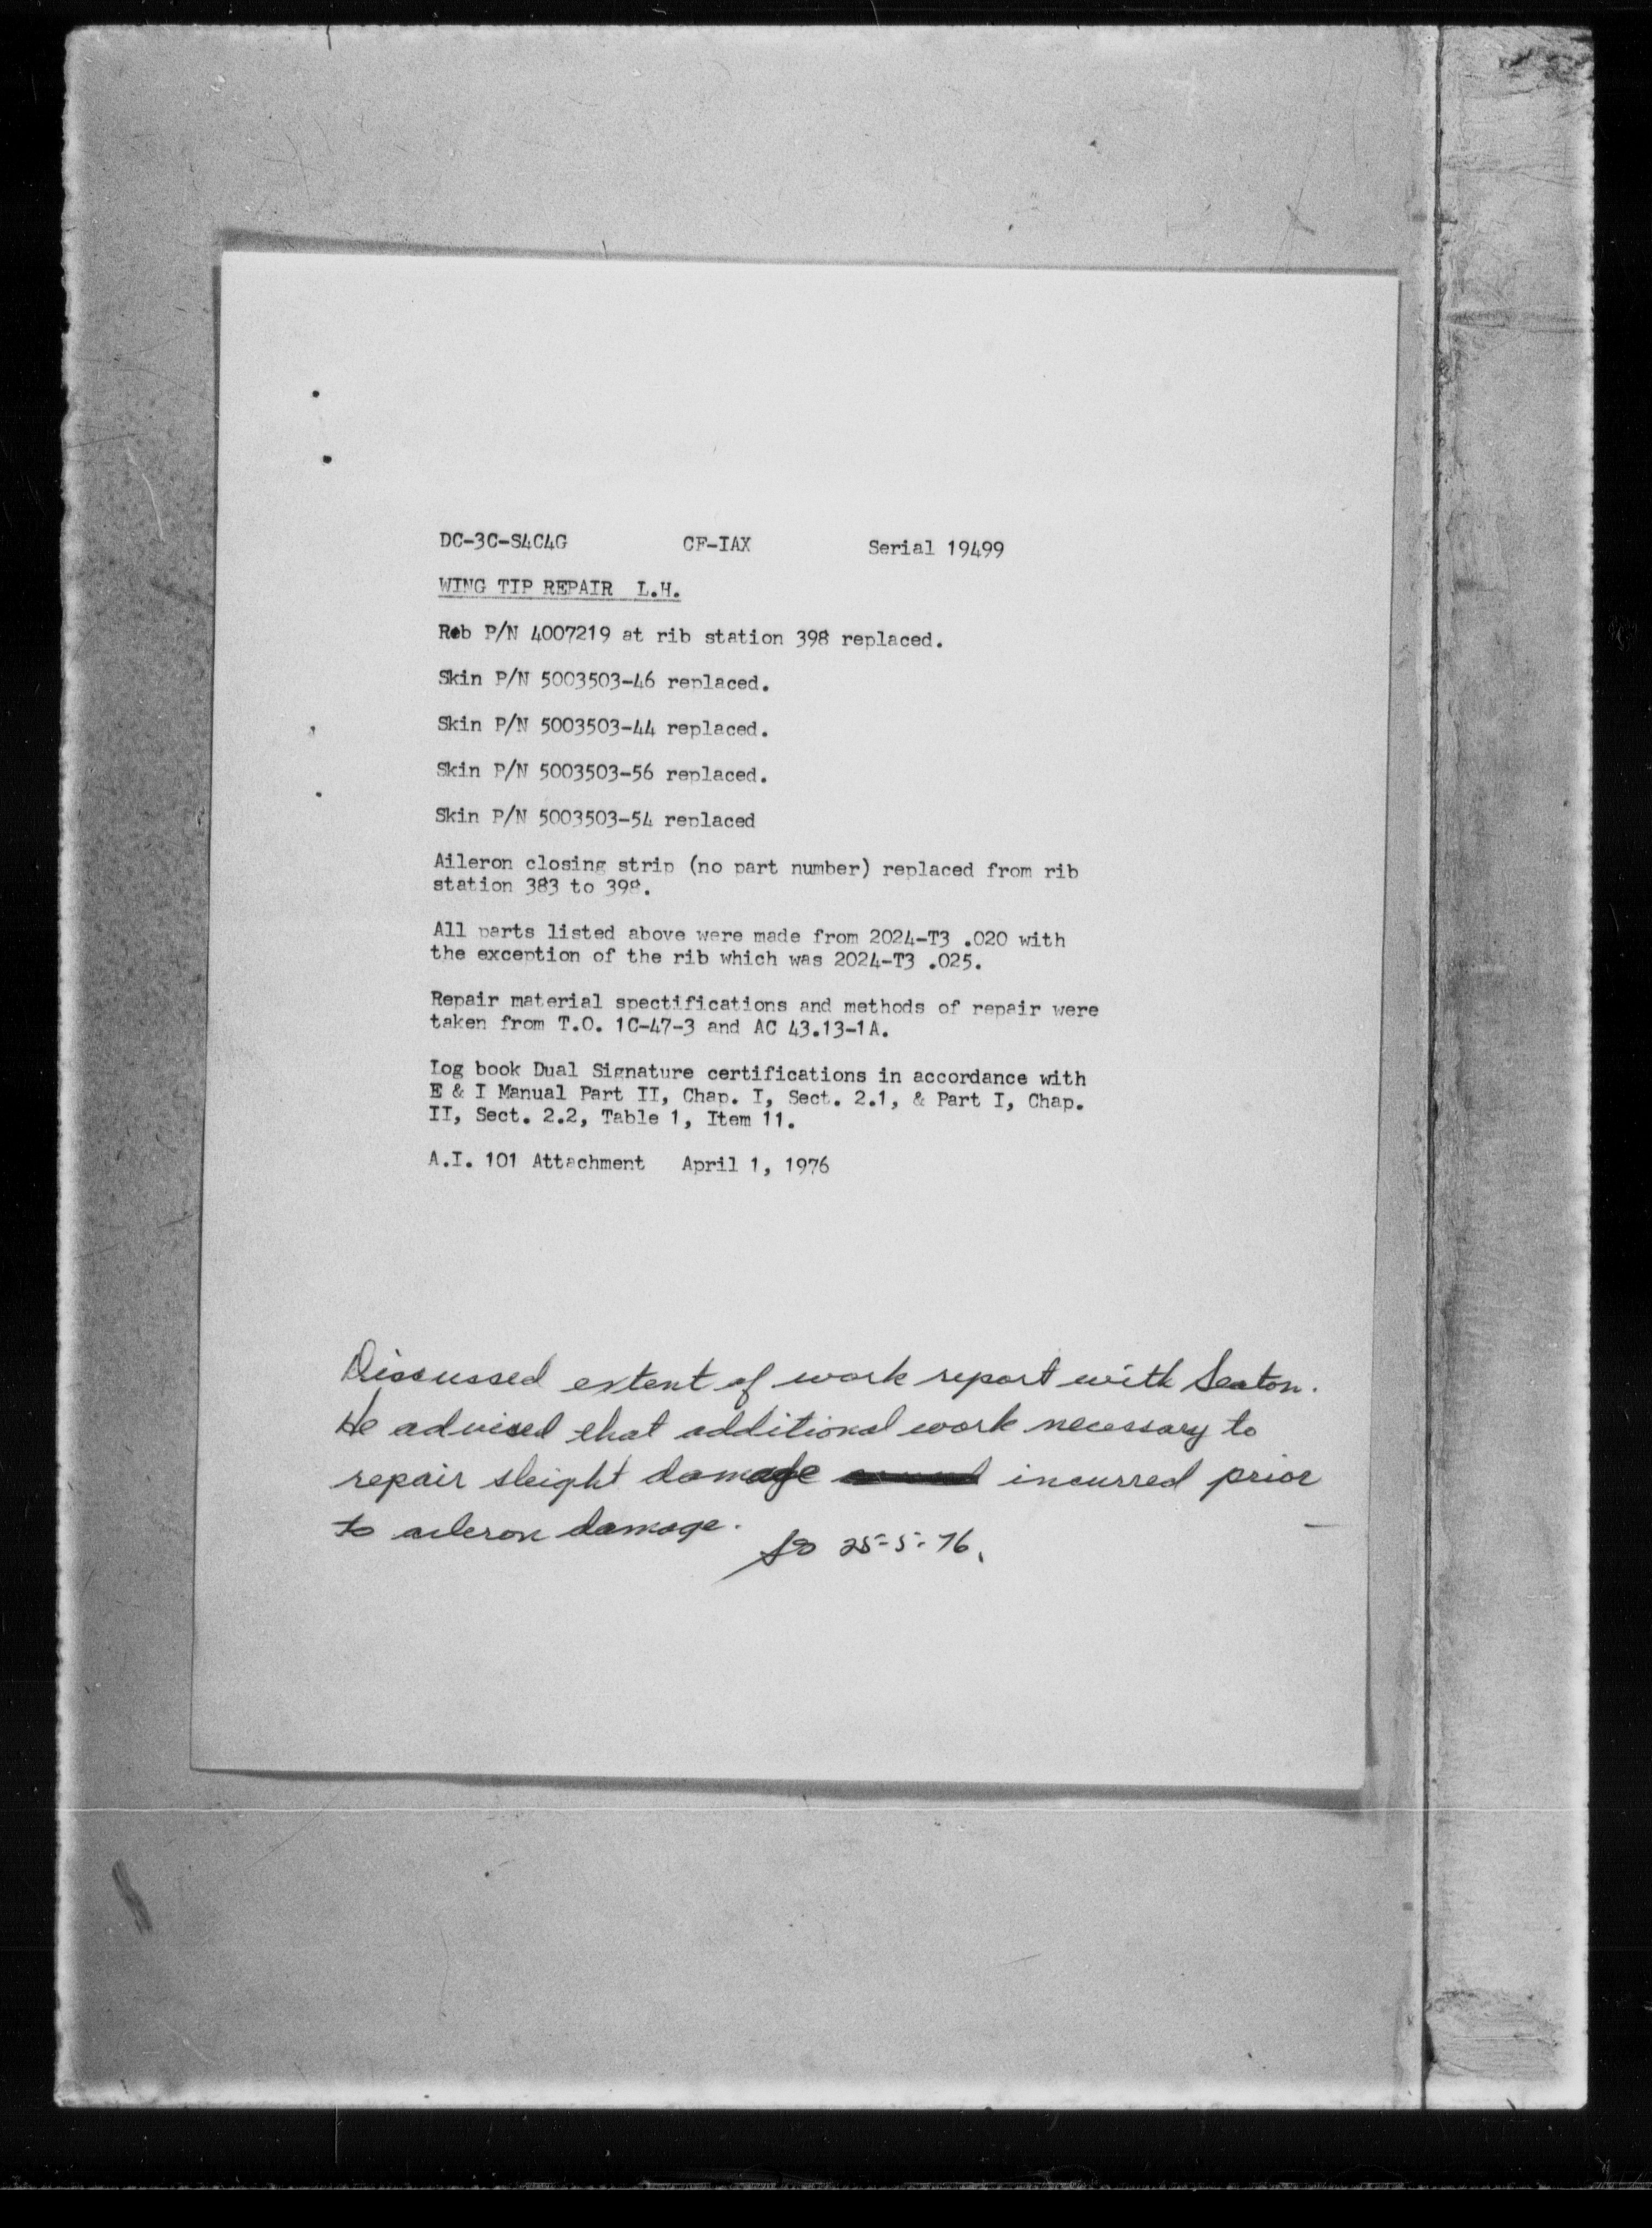 DC-3C-S4C4G CF-IAX Serial 19499
WING TIP REPAIR L.H.
Reb P/N 4007219 at rib station 398 replaced.
Skin P/N 5003503-46 replaced.
Skin P/N 5003503-44 replaced.
Skin P/N 5003503-56 replaced.
Skin P/N 5003503-54 replaced
Aileron closing strip (no part number) replaced from rib
station 383 to 398.
All parts listed above were made from 2024-T3 .020 with
the exception of the rib which was 2024-T3 .025.
Repair material spectifications and methods of repair were
taken from T.O. 1C-47-3 and AC 43.13-1A.
Log book Dual Signature certifications in accordance with
E & I Manual Part II, Chap. I, Sect. 2.1, & Part I, Chap.
II, Sect. 2.2, Table 1, Item 11.
A.I. 101 Attachment April 1, 1976
Discussed extent of work report with Seaton.
He advised that additional work necessary to
repair sleight damage incurred prior
to aileron damage.
25-5-76.